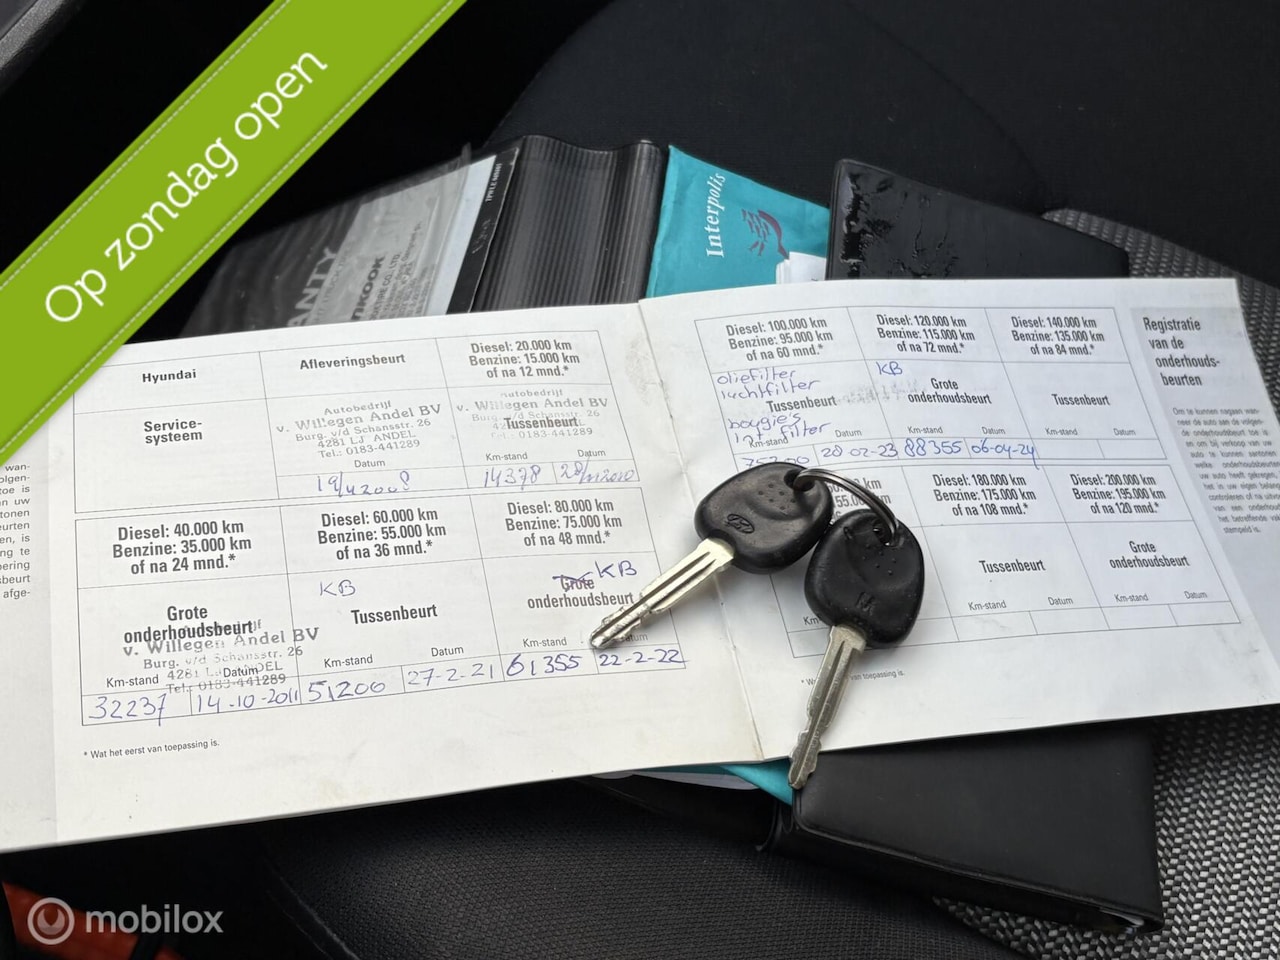 Op zondag open
Interpolis
Hyundai
Afleveringsbeurt
Diesel: 20.000 km
Benzine: 15.000 km
of na 12 mnd.*
Service-
systeem
Autobedrijf
v. Willegen Andel BV
Burg. v/d Schansstr. 26
4281 LJ ANDEL
Tel.: 0183-441289
Datum
19/4 2008
Autobedrijf
v. Willegen Andel BV
Burg. v/d Schansstr. 26
Tussenbeurt
Tel.: 0183-441289
Km-stand Datum
14378
Diesel: 40.000 km
Benzine: 35.000 km
of na 24 mnd.*
Diesel: 60.000 km
Benzine: 55.000 km
of na 36 mnd.*
Diesel: 80.000 km
Benzine: 75.000 km
of na 48 mnd.*
Grote
onderhoudsbeurt
v. Willegen Andel BV
Burg. v/d Schansstr. 26
4281 ANDEL
Tel.: 0183-441289
Km-stand Datum
32237 14-10-2011
KB
Tussenbeurt
Km-stand Datum
51200 27-2-21
KB
Grote
onderhoudsbeurt
Km-stand Datum
61355 22-2-22
* Wat het eerst van toepassing is.
Diesel: 100.000 km
Benzine: 95.000 km
of na 60 mnd.*
Diesel: 120.000 km
Benzine: 115.000 km
of na 72 mnd.*
Diesel: 140.000 km
Benzine: 135.000 km
of na 84 mnd.*
oliefilter
luchtfilter
Tussenbeurt
bougie's
int filter
Km-stand Datum
75200 28-02-23
KB
Grote
onderhoudsbeurt
Km-stand Datum
88355 06-04-24
Tussenbeurt
Km-stand Datum
Diesel: 180.000 km
Benzine: 175.000 km
of na 108 mnd.*
Diesel: 200.000 km
Benzine: 195.000 km
of na 120 mnd.*
Km-stand
Tussenbeurt
Km-stand Datum
Grote
onderhoudsbeurt
Km-stand Datum
van toepassing is.
Registratie
van de
onderhouds-
beurten
mobilox